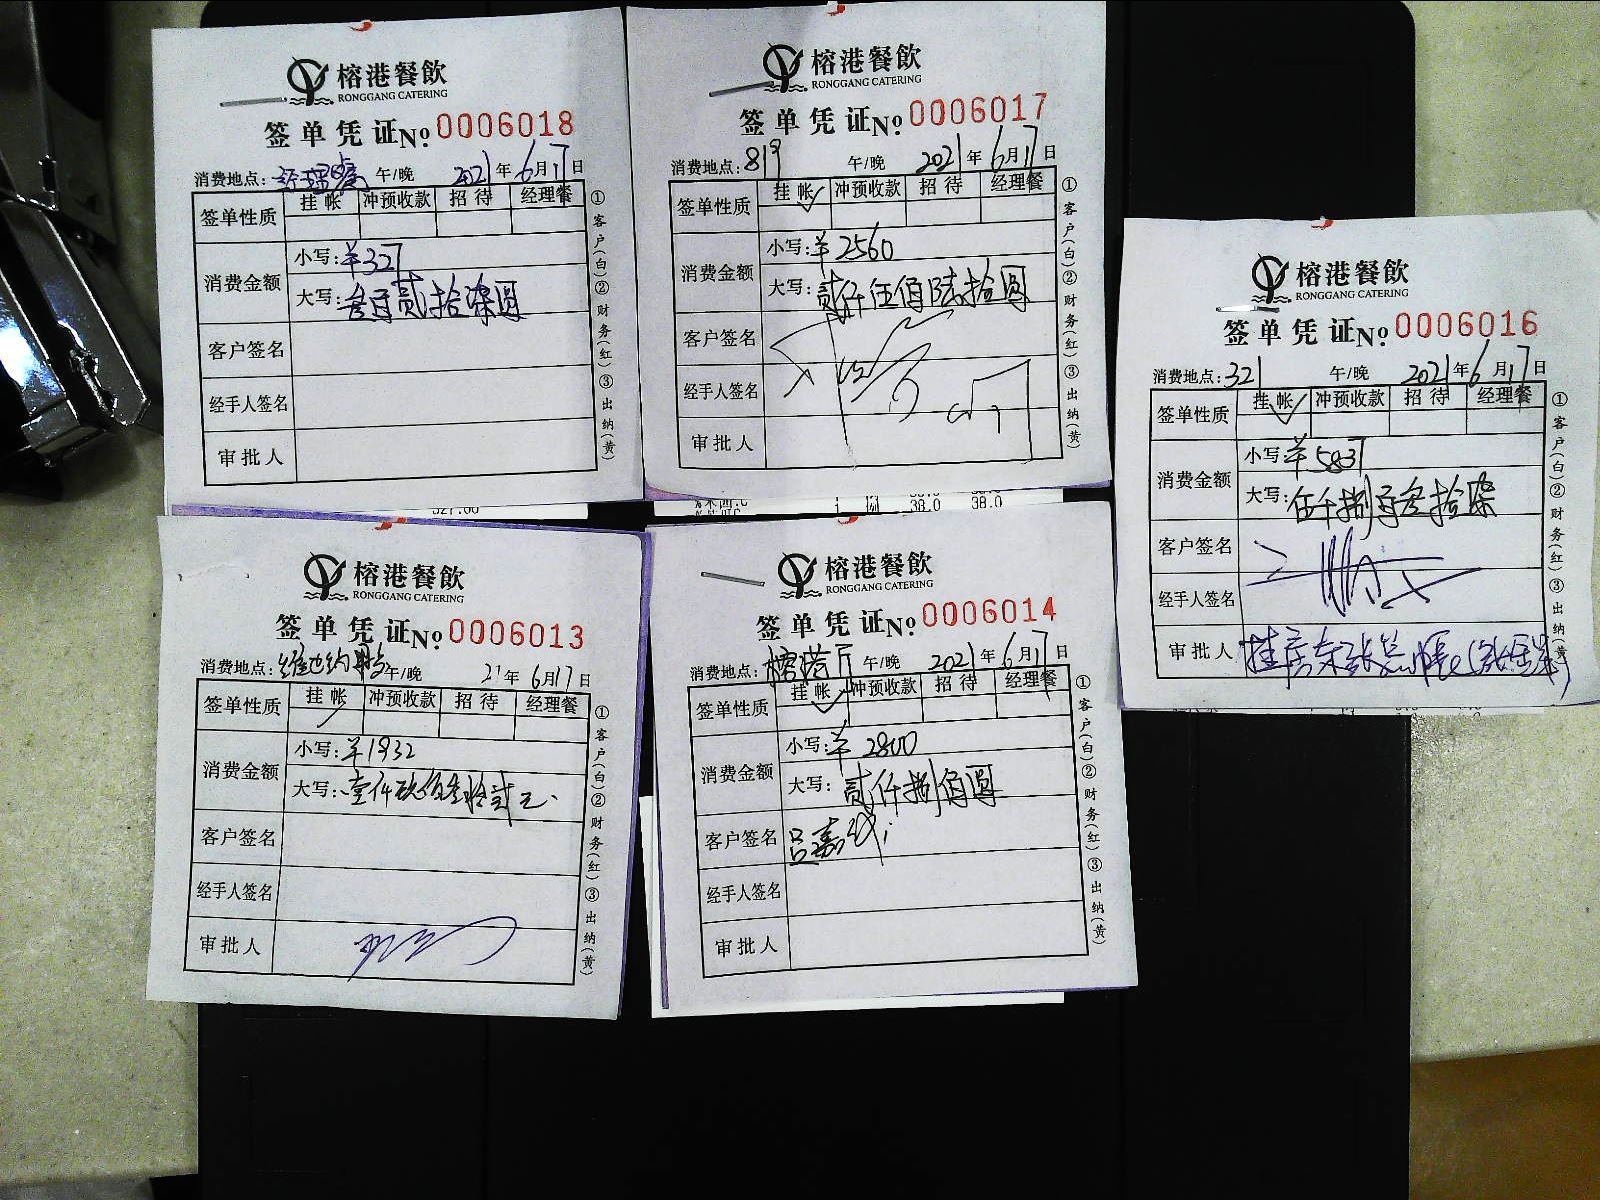 榕港餐飲
RONGGANG CATERING
签单凭证 No. 0006018
消费地点: 经理餐 午/晚 2021年6月17日
签单性质 挂帐 冲预收款 招待 经理餐
消费金额 小写: ¥327
大写: 叁百贰拾柒圆
客户签名
经手人签名
审批人
①客户(白)②财务(红)③出纳(黄)
榕港餐飲
RONGGANG CATERING
签单凭证 No. 0006017
消费地点: 819 午/晚 2021年6月17日
签单性质 挂帐 冲预收款 招待 经理餐
消费金额 小写: ¥2560
大写: 贰仟伍佰陆拾圆
客户签名
经手人签名
审批人
①客户(白)②财务(红)③出纳(黄)
榕港餐飲
RONGGANG CATERING
签单凭证 No. 0006016
消费地点: 321 午/晚 2021年6月17日
签单性质 挂帐 冲预收款 招待 经理餐
消费金额 小写: ¥5837
大写: 伍仟捌百叁拾柒
客户签名
经手人签名
审批人
①客户(白)②财务(红)③出纳(黄)
327.00
38.0 38.0
榕港餐飲
RONGGANG CATERING
签单凭证 No. 0006013
消费地点: 维也纳 午/晚 21年6月17日
签单性质 挂帐 冲预收款 招待 经理餐
消费金额 小写: ¥1932
大写: 壹仟玖佰叁拾贰元
客户签名
经手人签名
审批人
①客户(白)②财务(红)③出纳(黄)
榕港餐飲
RONGGANG CATERING
签单凭证 No. 0006014
消费地点: 榕港厅 午/晚 2021年6月17日
签单性质 挂帐 冲预收款 招待 经理餐
消费金额 小写: ¥2800
大写: 贰仟捌佰圆
客户签名 吕嘉
经手人签名
审批人
①客户(白)②财务(红)③出纳(黄)